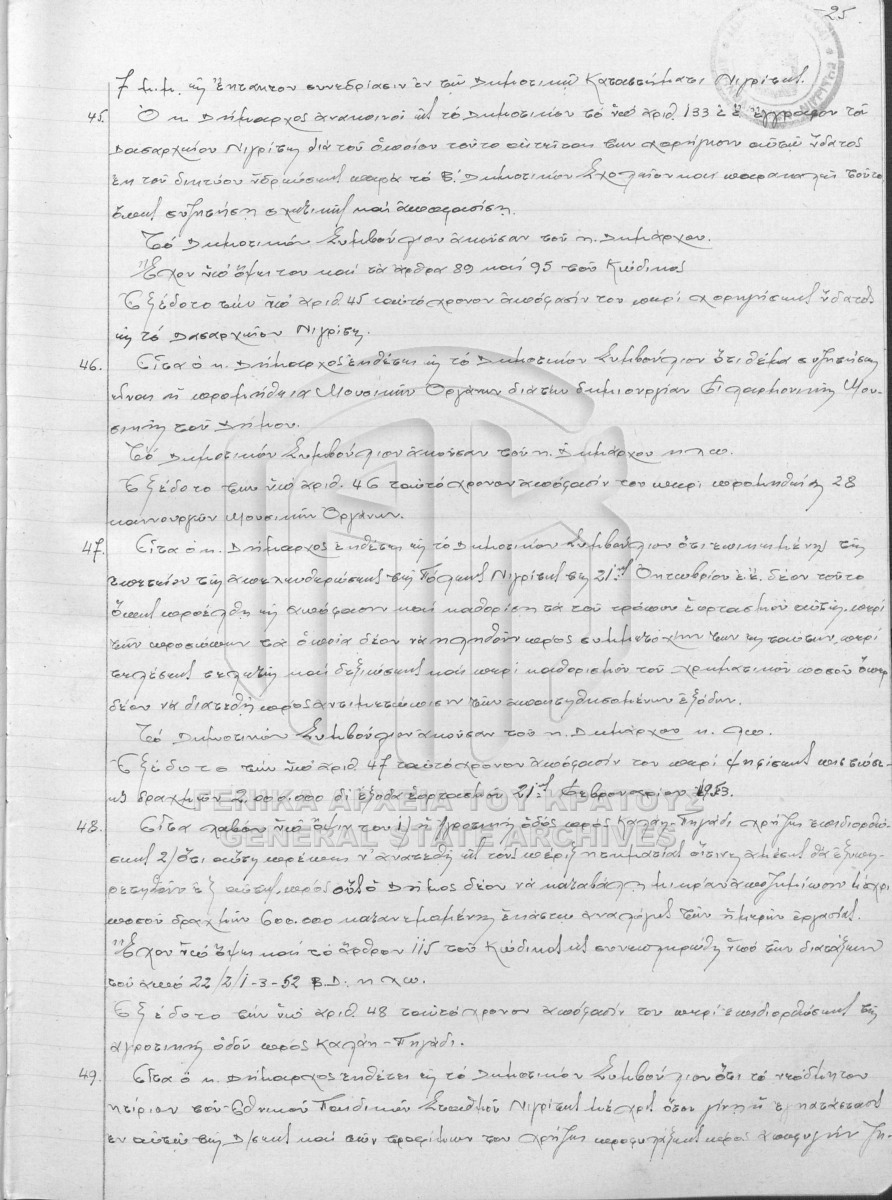 25.
7 μ.μ. εἰς ἔκτακτον συνεδρίασιν ἐν τῷ Δημοτικῷ Καταστήματι Νιγρίτης.
45. Ὁ κ. Δήμαρχος ἀνακοινοῖ εἰς τό Δημοτικόν τό ὑπ' ἀριθ. 133 ἐ.ἔ. ἔγγραφον τοῦ
Δασαρχείου Νιγρίτης διά τοῦ ὁποίου τοῦτο αἰτεῖται τήν χορήγησιν αὐτῷ ὕδατος
ἐκ τοῦ δικτύου ὑδρεύσεως παρά τό Β! Δημοτικόν Σχολεῖον καί παρακαλεῖ τοῦτο
ὅπως συζητήσῃ σχετικῶς καί ἀποφασίσῃ.
Τό Δημοτικόν Συμβούλιον ἀκοῦσαν τοῦ κ. Δημάρχου.
Ἔχον ὑπ' ὄψει του καί τά ἄρθρα 89 καί 95 τοῦ Κώδικος
Ἐξέδοτο τήν ὑπ' ἀριθ. 45 ταὐτόχρονον ἀπόφασίν του περί χορηγήσεως ὕδατος
εἰς τό Δασαρχεῖον Νιγρίτης.
46. Εἶτα ὁ κ. Δήμαρχος ἐκθέτει εἰς τό Δημοτικόν Συμβούλιον ὅτι θέμα συζητήσεως
εἶναι ἡ προμήθεια Μουσικῶν Ὀργάνων διά τήν δημιουργίαν Φιλαρμονικῆς Μου-
σικῆς τοῦ Δήμου.
Τό Δημοτικόν Συμβούλιον ἀκοῦσαν τοῦ κ. Δημάρχου κ.λ.π.
Ἐξέδοτο τήν ὑπ' ἀριθ. 46 ταὐτόχρονον ἀπόφασίν του περί προμηθείας 28
καινουργῶν Μουσικῶν Ὀργάνων.
47. Εἶτα ὁ κ. Δήμαρχος ἐκθέτει εἰς τό Δημοτικόν Συμβούλιον ὅτι ἐπικειμένης τῆς
ἐπετείου τῆς ἀπελευθερώσεως τῆς Πόλεως Νιγρίτης τῆς 21ης Ὀκτωβρίου ἐ.ἔ. δέον τοῦτο
ὅπως προέλθῃ εἰς ἀπόφασιν καί καθορίσῃ τά τοῦ τρόπου ἑορτασμοῦ αὐτῆς, περί
τῶν προσώπων τά ὁποῖα δέον νά κληθοῦν πρός συμμετοχήν των εἰς ταύτην, περί
τελέσεως τελετῆς καί δεξιώσεως καί περί καθορισμοῦ τοῦ χρηματικοῦ ποσοῦ ὅπερ
δέον νά διατεθῇ πρός ἀντιμετώπισιν τῶν ἀπαιτηθησομένων ἐξόδων.
Τό Δημοτικόν Συμβούλιον ἀκοῦσαν τοῦ κ. Δημάρχου κ.λ.π.
Ἐξέδοτο τήν ὑπ' ἀριθ. 47 ταὐτόχρονον ἀπόφασίν του περί ψηφίσεως πιστώσε-
ως δραχμῶν 2.000.000 δι' ἔξοδα ἑορτασμοῦ 21ης Φεβρουαρίου 1953.
ΓΕΝΙΚΑ ΑΡΧΕΙΑ ΤΟΥ ΚΡΑΤΟΥΣ
GENERAL STATE ARCHIVES
48. Εἶτα λαβόν ὑπ' ὄψιν του 1/ ἡ ἀγροτική ὁδός πρός Καλάη-Πηγάδι χρήζει ἐπιδιορθώ-
σεως 2/ ὅτι αὕτη πρέπει ν' ἀνατεθῇ εἰς τούς πέριξ κτηματίας οἵτινες ἀμέσως θά ἐξυπη-
ρετηθοῦν ἐξ αὐτῆς, πρός οὕς ὁ Δῆμος δέον νά καταβάλῃ μικράν ἀποζημίωσιν μέχρι
ποσοῦ δραχμῶν 600.000 κατανεμομένης ἑκάστῳ ἀναλόγως τῶν ἡμερῶν ἐργασίας.
Ἔχον ὑπ' ὄψει καί τό ἄρθρον 115 τοῦ Κώδικος ὡς συνεπληρώθη ὑπό τῶν διατάξεων
τοῦ ἀπό 22/2/1-3-52 Β.Δ. κ.λ.π.
Ἐξέδοτο τήν ὑπ' ἀριθ. 48 ταὐτόχρονον ἀπόφασίν του περί ἐπιδιορθώσεως τῆς
ἀγροτικῆς ὁδοῦ πρός Καλάη-Πηγάδι.
49. Εἶτα ὁ κ. Δήμαρχος ἐκθέτει εἰς τό Δημοτικόν Συμβούλιον ὅτι τό νεόδμητον
κτίριον τοῦ Ἐθνικοῦ Παιδικοῦ Σταθμοῦ Νιγρίτης μέχρις ὅτου γίνῃ ἡ ἐγκατάστασις
ἐν αὐτῷ τῆς Δ/σεως καί τῶν τροφίμων του χρήζει προφυλάξεως πρός ἀποφυγήν ζη-